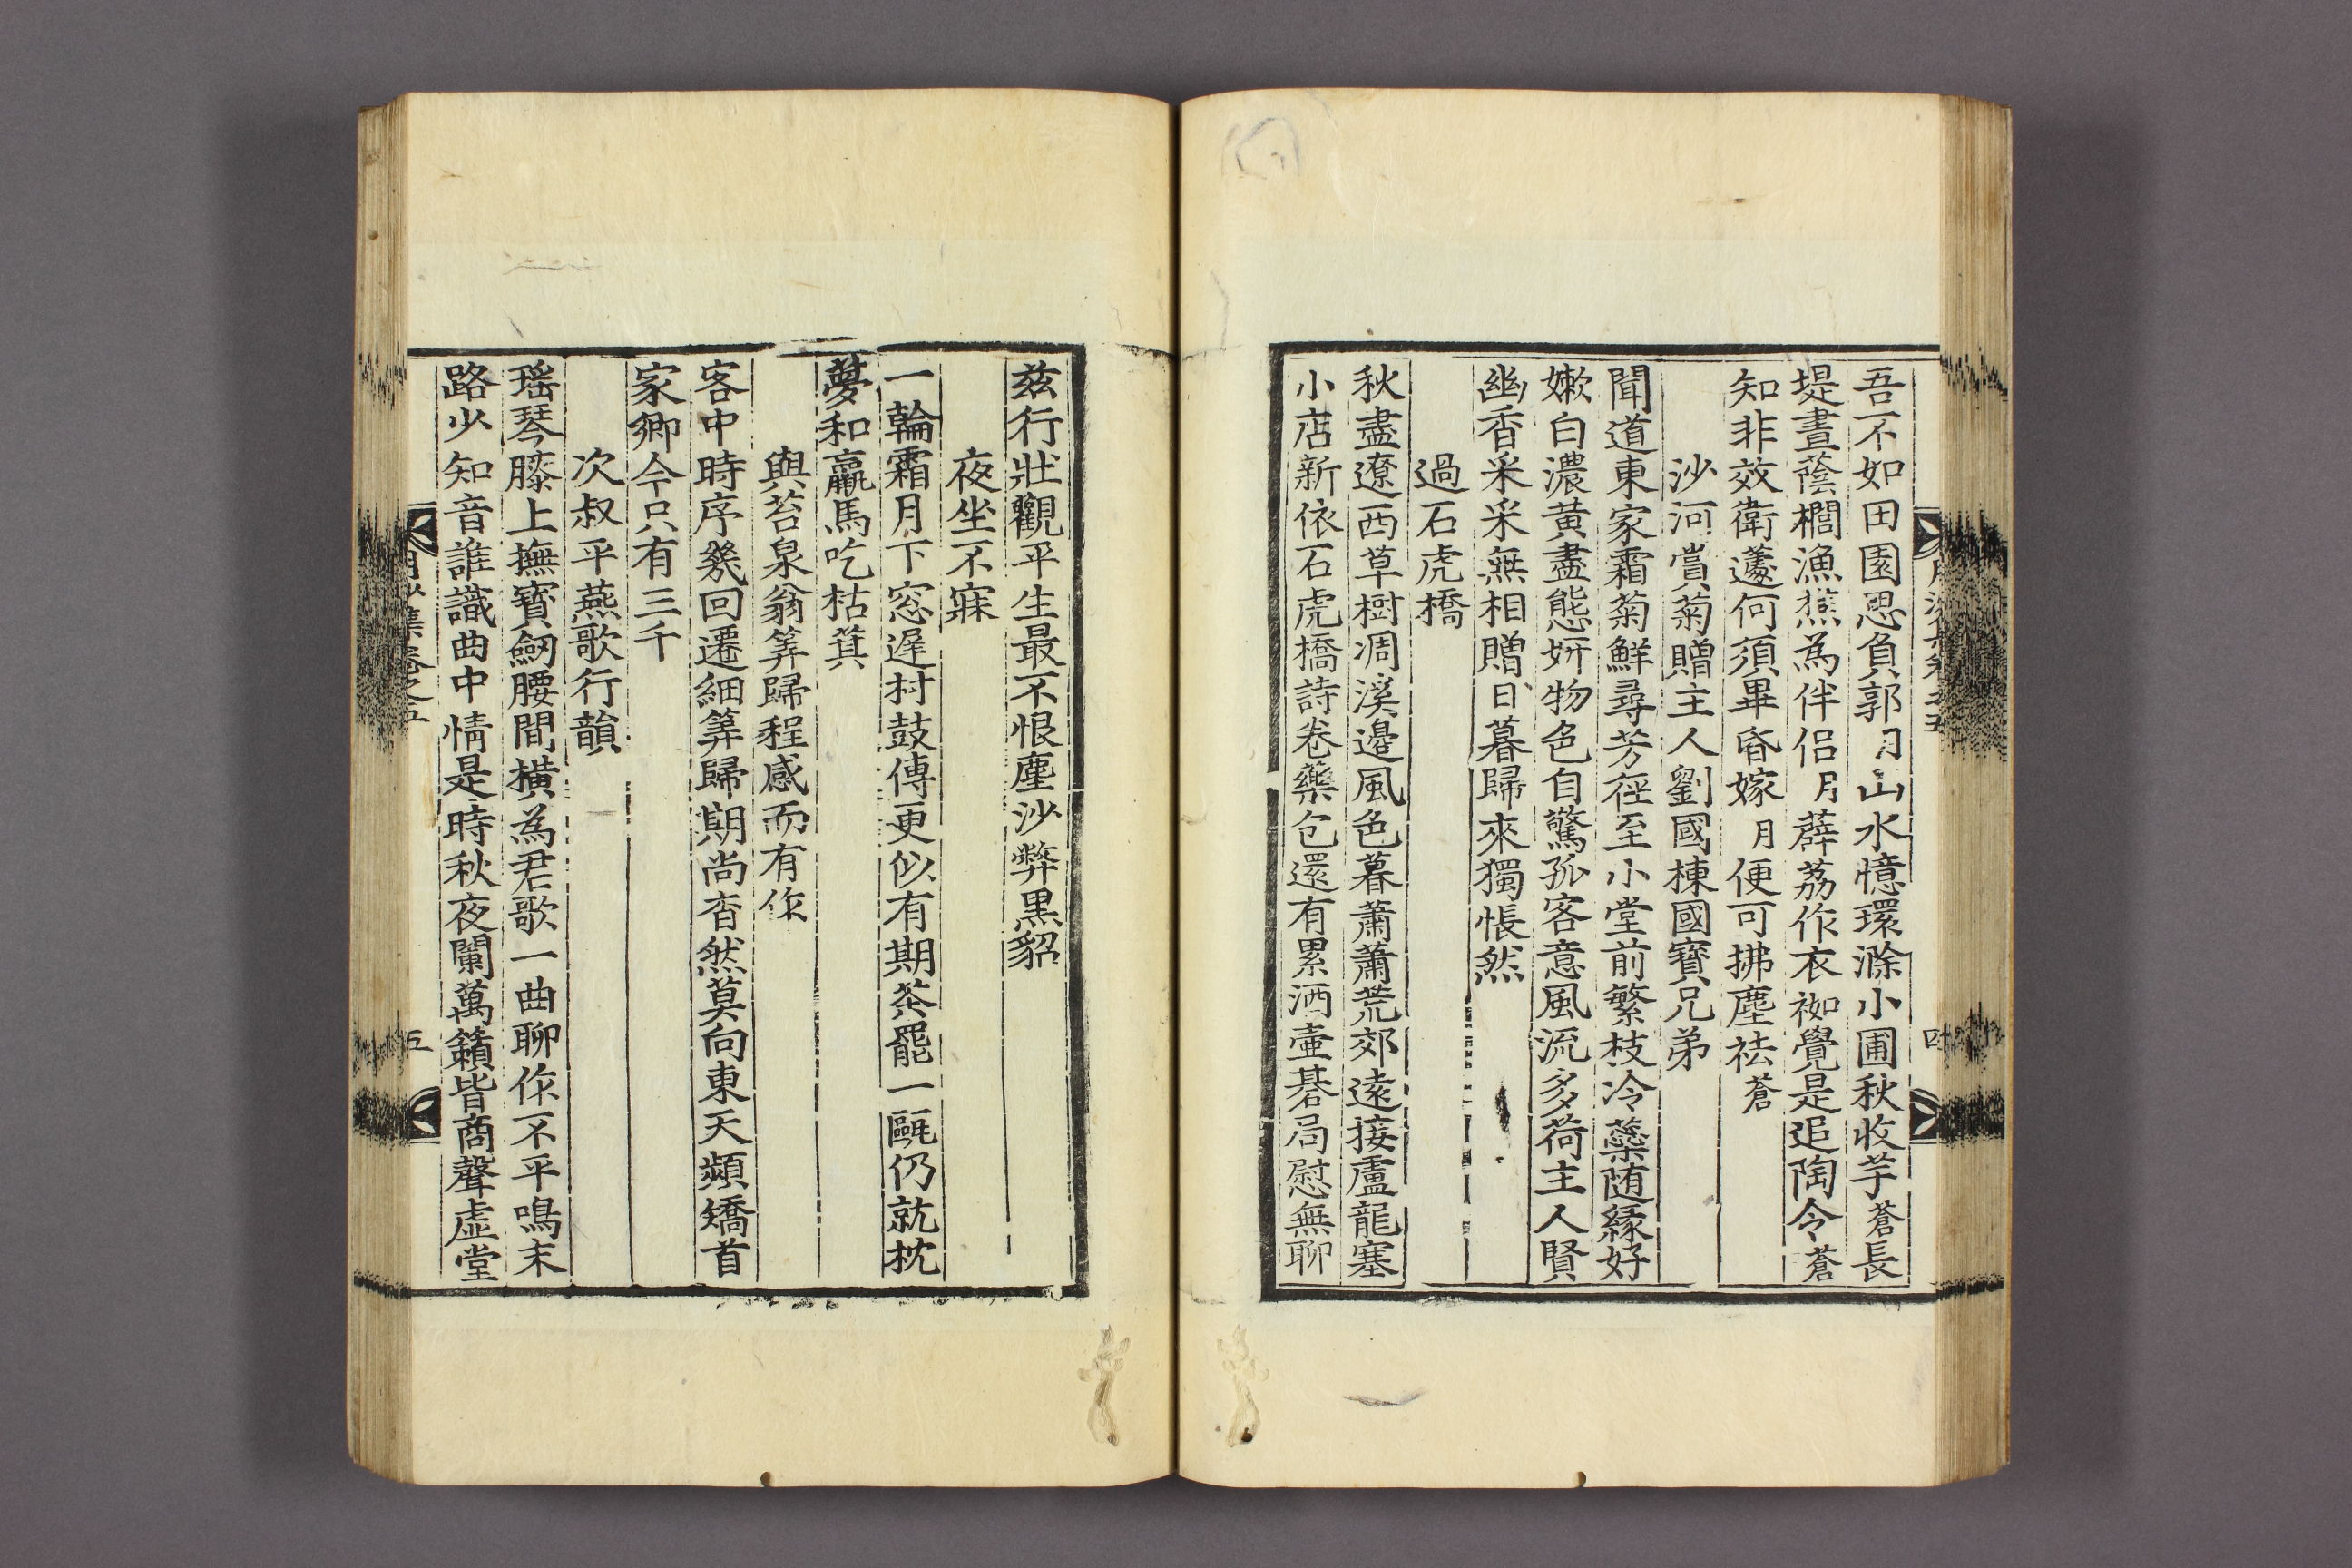 吾不如田園思負郭月山水憶環滁小圃秋收芋蒼長
堤晝蔭櫚漁蕉為伴侶月薜荔作衣袽覺是追陶令蒼
知非效衛蘧何須畢昏嫁月便可拂塵袪蒼
沙河賞菊贈主人劉國棟國寶兄弟
聞道東家霜菊鮮尋芳徑至小堂前繁枝冷蘂随緣好
嫩白濃黃盡態妍物色自驚孤客意風流多荷主人賢
幽香采采無相贈日暮歸來獨悵然
過石虎橋
秋盡遼西草樹凋溪邊風色暮蕭蕭荒郊遠接盧龍塞
小店新依石虎橋詩卷藥包還有累酒壺碁局慰無聊
茲行壯觀平生最不恨塵沙弊黑貂
夜坐不寐
一輪霜月下窓遲村鼓傳更似有期茶罷一甌仍就枕
夢和羸馬吃枯萁
與苔泉翁筭歸程感而有作
客中時序幾回遷細筭歸期尚杳然莫向東天頻矯首
家鄉今只有三千
次叔平燕歌行韻
瑤琴膝上撫寶劒腰間橫為君歌一曲聊作不平鳴末
路少知音誰識曲中情是時秋夜闌萬籟皆商聲虛堂
月沙集卷之五
五